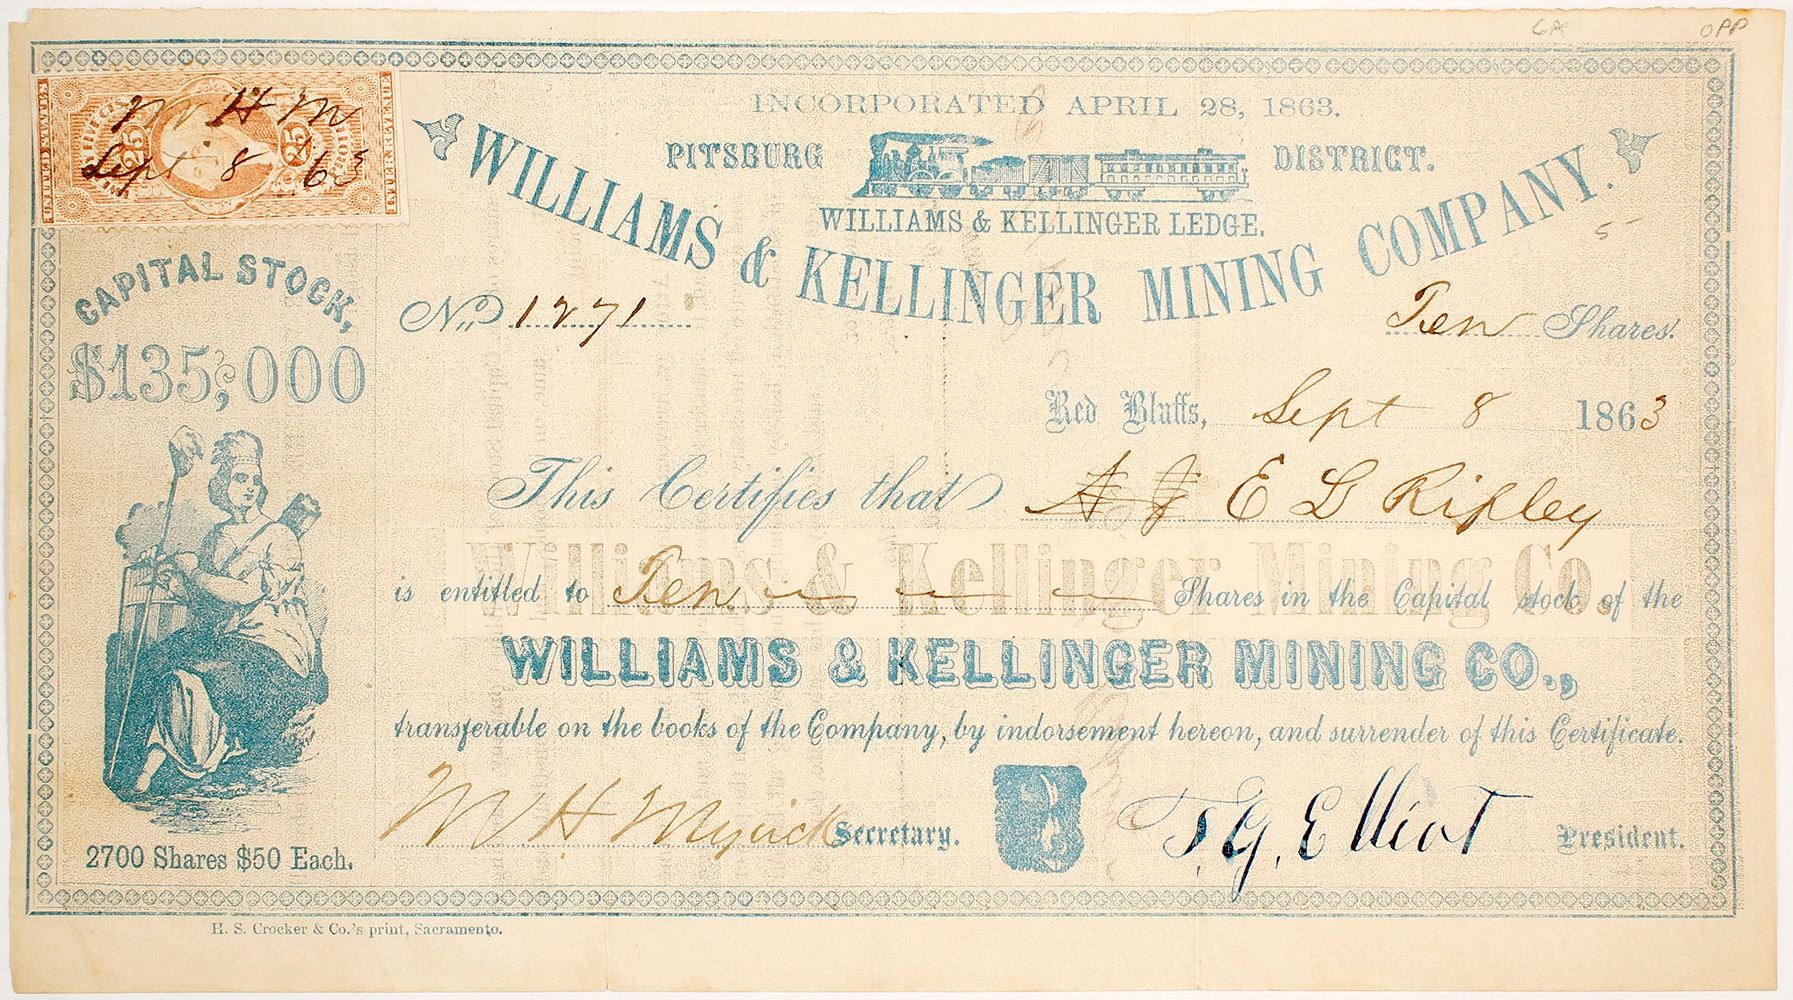 CA OPP
INCORPORATED APRIL 28, 1863.
PITSBURG DISTRICT.
WILLIAMS & KELLINGER LEDGE.
WILLIAMS & KELLINGER MINING COMPANY.
5-
UNITED STATES
INTER. REVENUE
25 25
W H M
Sept 8 63
CAPITAL STOCK,
$135,000
2700 Shares $50 Each.
No. 1271
Ten Shares.
Red Bluffs, Sept 8 1863
This Certifies that E L Ripley
Williams & Kellinger Mining Co.
is entitled to Ten Shares in the Capital stock of the
WILLIAMS & KELLINGER MINING CO.,
transferable on the books of the Company, by indorsement hereon, and surrender of this Certificate.
W H Myrick Secretary. T. G. Elliot President.
H. S. Crocker & Co.'s print, Sacramento.